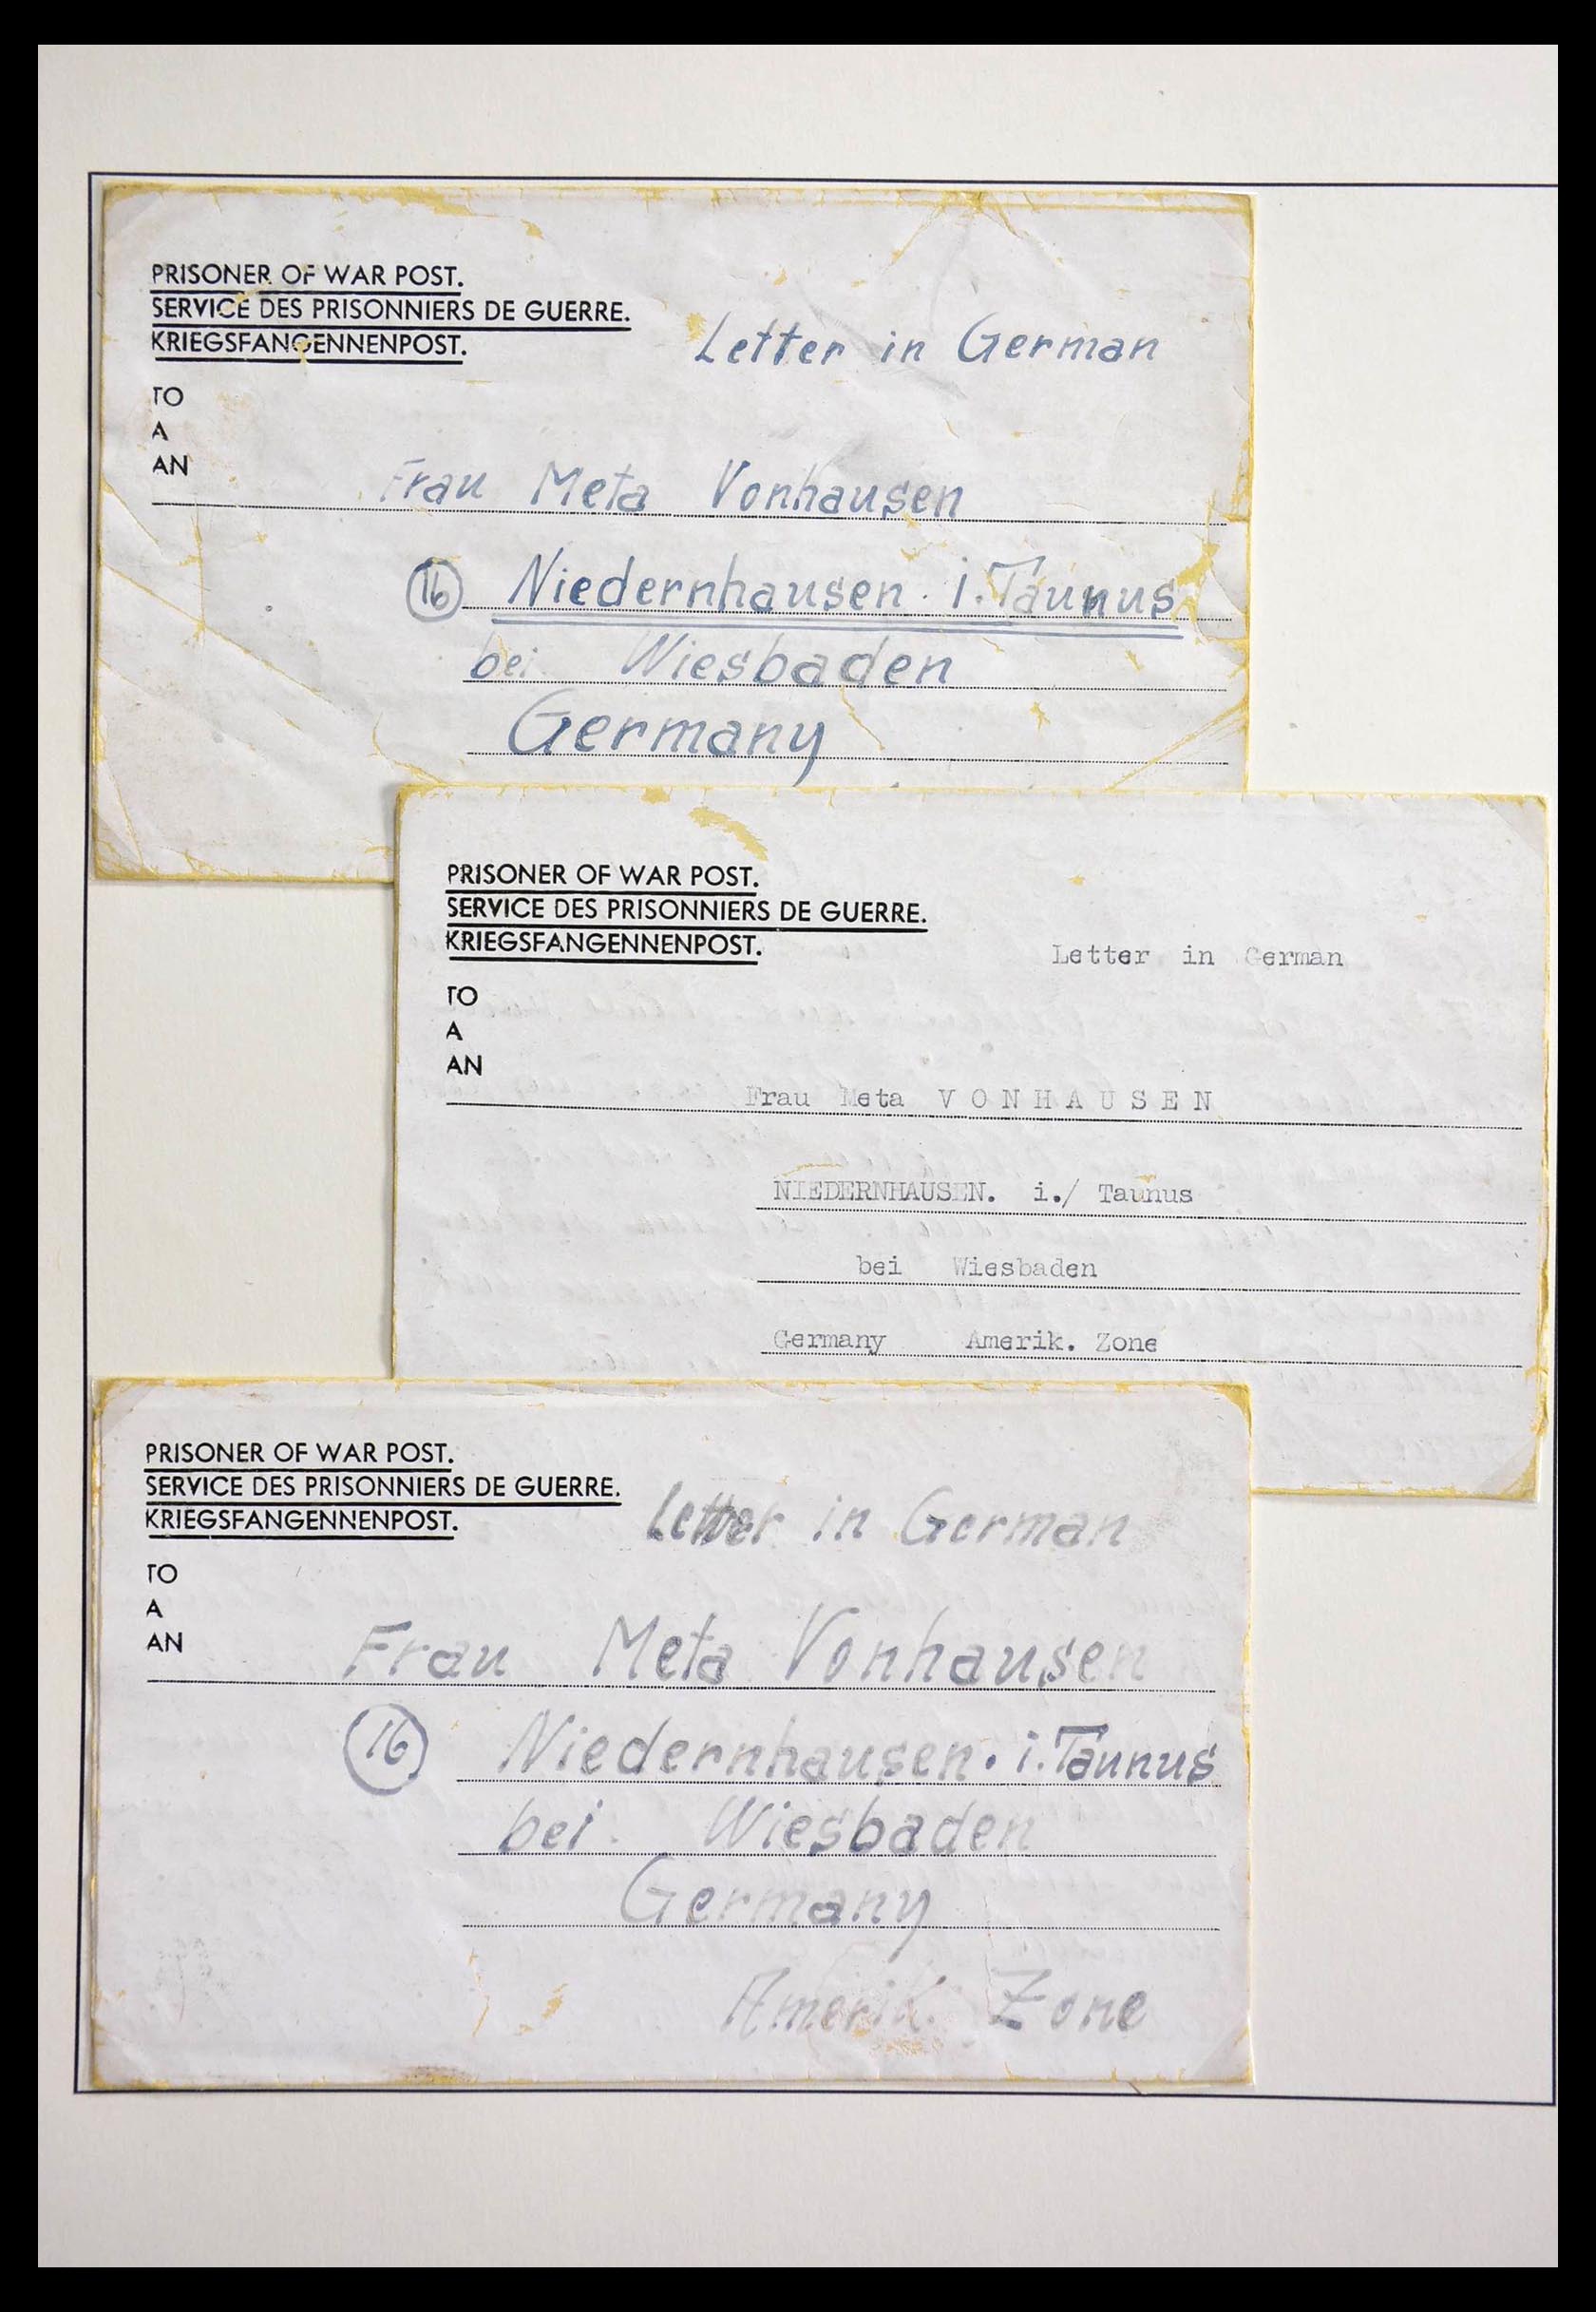 PRISONER OF WAR POST.
SERVICE DES PRISONNIERS DE GUERRE.
KRIEGSFANGENNENPOST.
Letter in German
TO
A
AN
Frau Meta Vonhausen
16 Niedernhausen i. Taunus
bei Wiesbaden
Germany
PRISONER OF WAR POST.
SERVICE DES PRISONNIERS DE GUERRE.
KRIEGSFANGENNENPOST.
Letter in German
TO
A
AN
Frau Meta V O N H A U S E N
NIEDERNHAUSEN. i./ Taunus
bei Wiesbaden
Germany Amerik. Zone
PRISONER OF WAR POST.
SERVICE DES PRISONNIERS DE GUERRE.
KRIEGSFANGENNENPOST.
Letter in German
TO
A
AN
Frau Meta Vonhausen
16 Niedernhausen. i. Taunus
bei Wiesbaden
Germany
Amerik. Zone